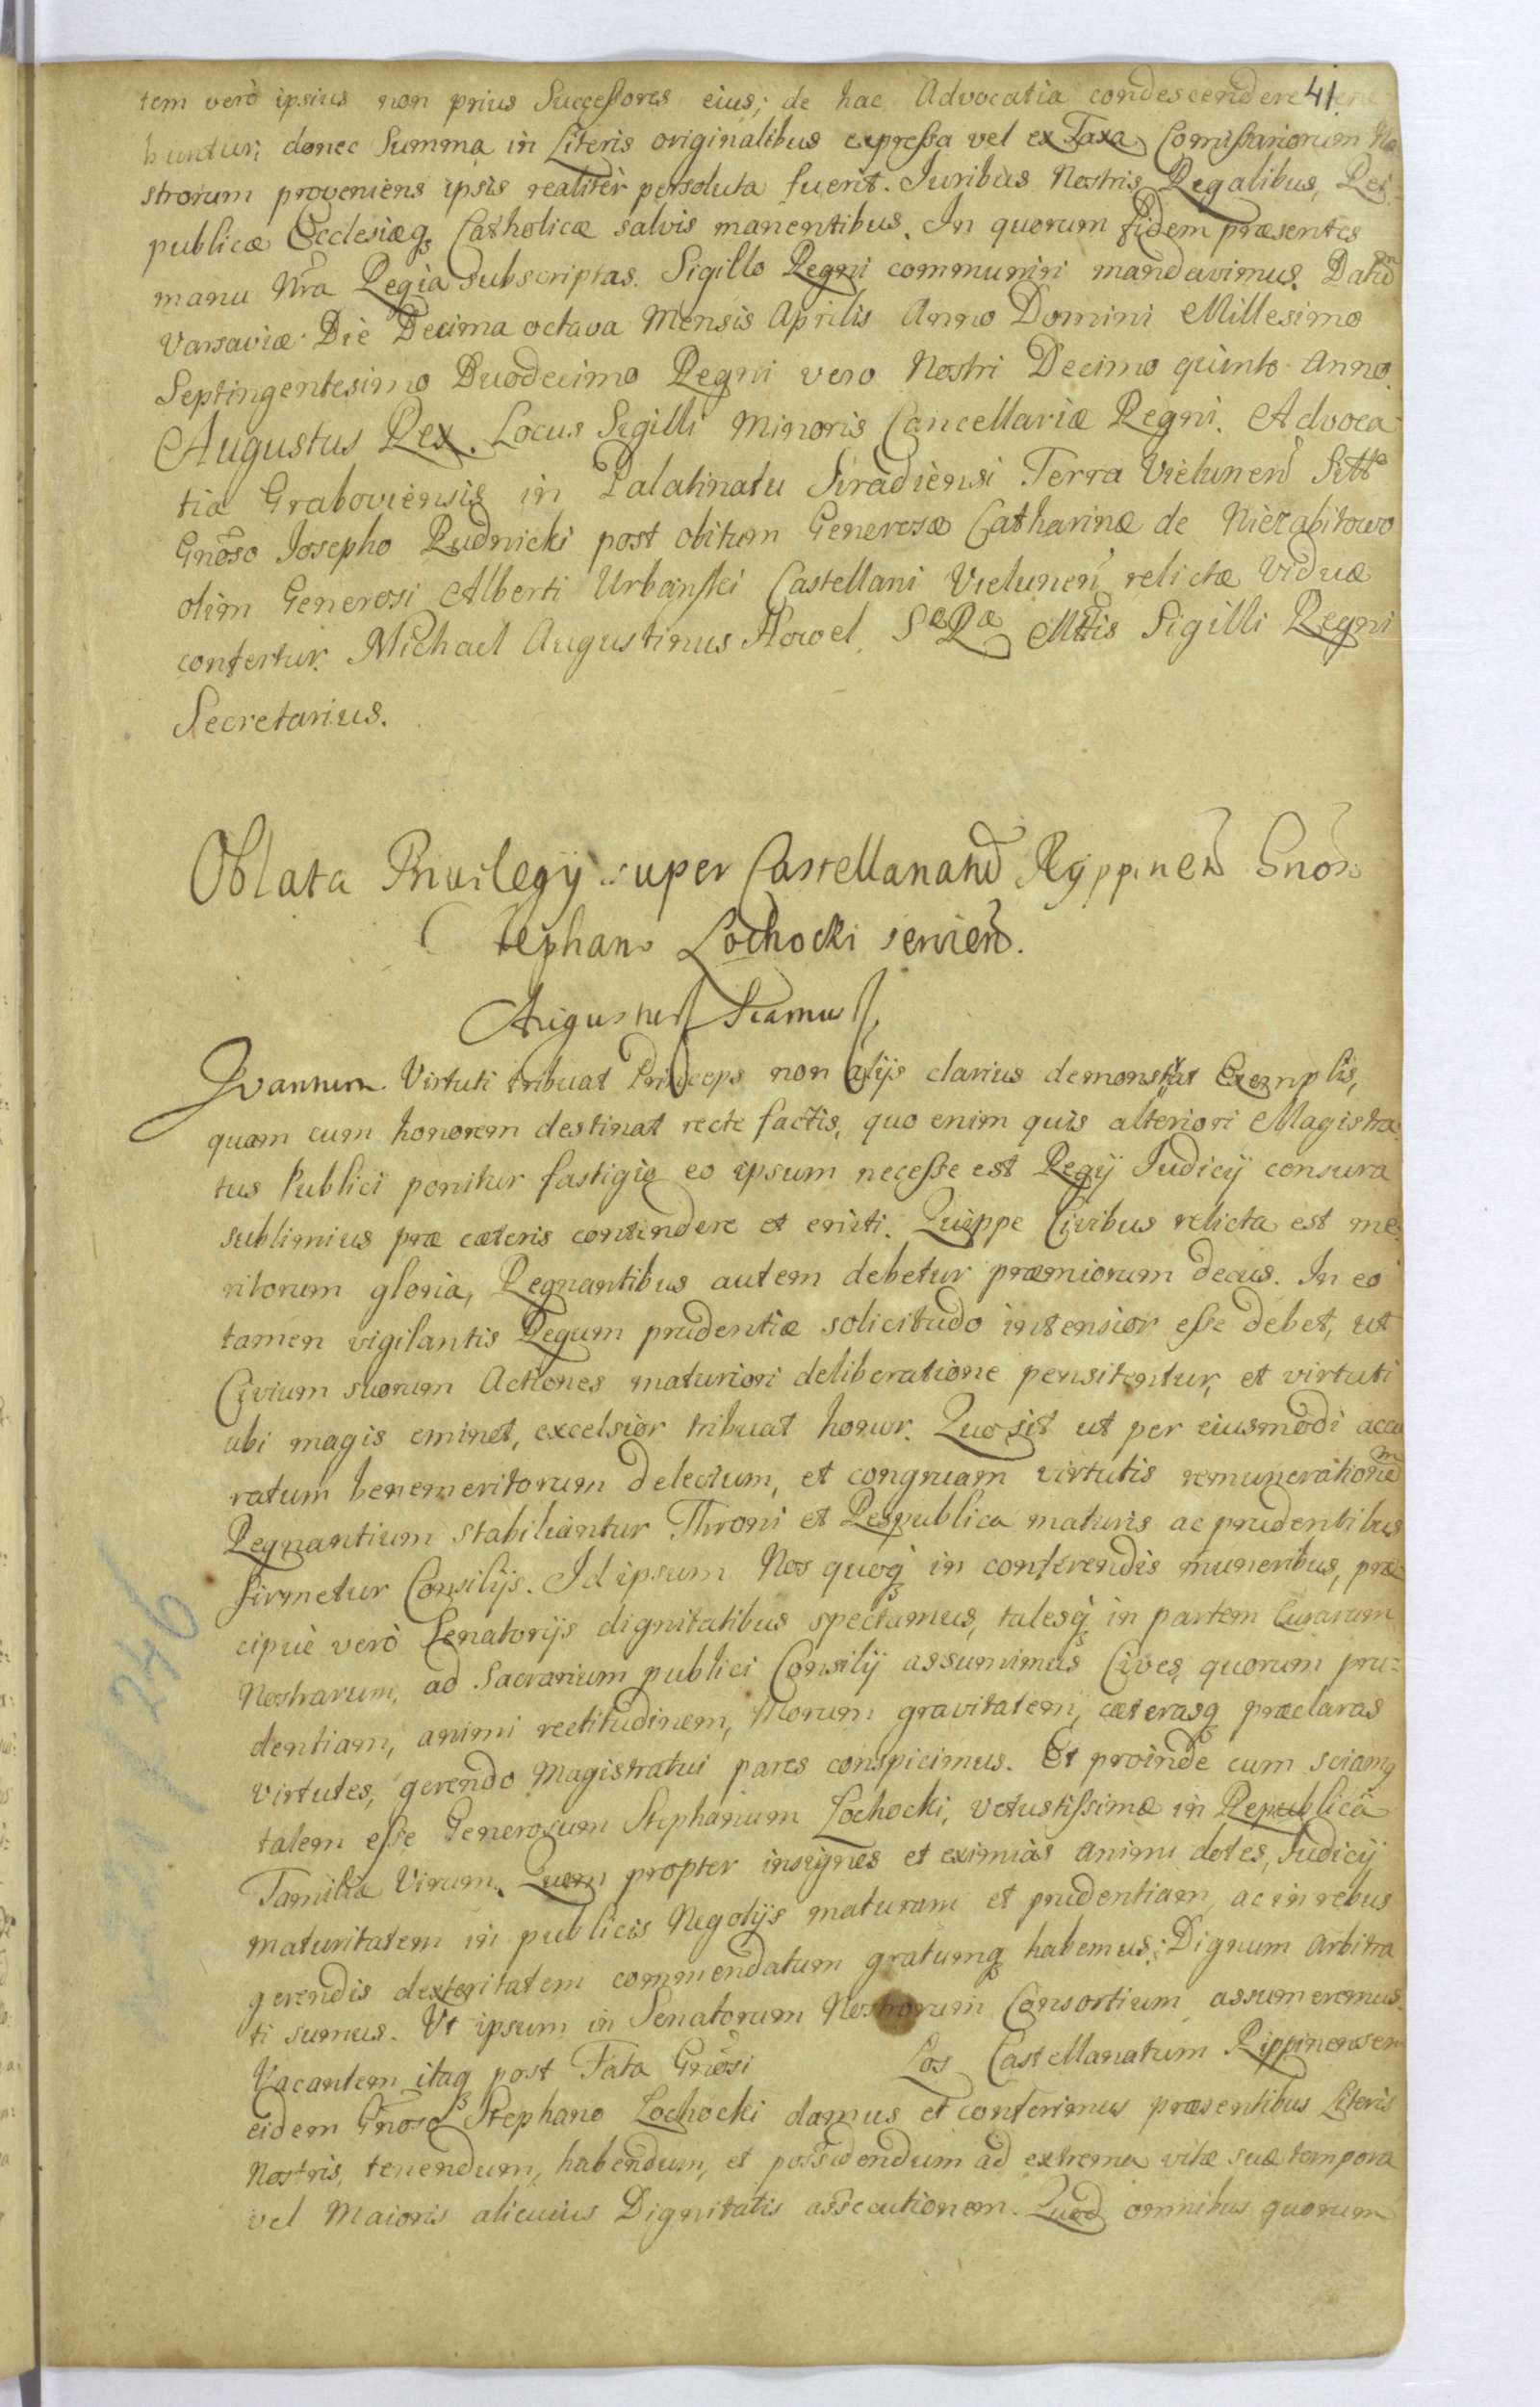 41
tem verò ipsius non prius Successores eius; de hac Advocatia condescendere
buntur; donec Summa in Literis originalibus expressa vel ex Taxa Comissariorum No
strorum proveniens ipsis realitèr persoluta fuerit. Juribus Nostris Regalibus, Rei-
publicæ Ecclesiæq Catholicæ salvis manentibus. In quorum fidem præsentes
manu Nrã Regia subscriptas. Sigillo Regni communiri mandavimus. Datũ
Varsaviæ Die Decima octava Mensis Aprilis Anno Domini Millesimo
Septingentesimo Duodecimo Regni vero Nostri Decimo quinto Anno.
Augustus Rex. Locus Sigilli Minoris Cancellariæ Regni. Advoca-
tia Graboviensis in Palatinatu Siradiensi Terra Vielunen Sitta
Gnõso Josepho Rudnicki post obitum Generosæ Catharinæ de Nierabitowo
olim Generosi Alberti Urbański Castellani Vielunen relictæ Viduæ
confertur. Michael Augustinus Howel. SæRæ Mttis Sigilli Regni
Secretarius.
Oblata Privilegij super Castellanatũ Ryppinen Gnõso
Stephano Lochocki servien.
Augustus Scamus
Quantum Virtuti tribuat Princeps non alijs clarius demonstrat Exemplis,
quam cum honorem destinat recte factis, quo enim quis alteriori Magistra-
tus Publici ponitur fastigio eo ipsum necesse est Regij Judicij censura
sublimius præ cæteris contendere et eniti. Quippe Civibus relicta est me-
ritorum gloria, Regnantibus autem debetur præmiorum decus. In eo
tamen vigilantis Regum prudentiæ solicitudo intensior esse debet, ut
Civium suorum Actiones maturiori deliberatione pensitentur, et virtuti
ubi magis eminet, excelsior tribuat honor. Quo fit ut per eiusmodi accu
ratum benemeritorum delectum, et congruam virtutis remunerationem
Regnantium stabiliantur Throni et Respublica maturis ac prudentibus
firmetur Consilijs. Id ipsum Nos quoq in conferendis muneribus, præ-
cipuè verò Senatorijs dignitatibus spectamus, talesq in partem Curarum
Nostrarum, ad Sacrarium publici Consilij assumimus Cives, quorum pru-
dentiam, animi rectitudinem, Morum gravitatem, cæterasq præclaras
virtutes, gerendo Magistratui pares conspicimus. Et proinde cum sciamq
talem esse Generosum Stephanum Lochocki, vetustissimæ in Republica
Familiæ Virum. Quem propter insignes et eximias animi dotes, Judicij
maturitatem in publicis Negotijs maturam et prudentiam, ac in rebus
gerendis dexteritatem commendatum gratumq habemus; Dignum arbitra
ti sumus. Ut ipsum in Senatorum Nostrorum Consortium assumeremus.
Vacantem itaq post Fata Gnõsi Los Castellanatum Rippinensem
eidem Gnõso Stephano Lochocki damus et conferimus præsentibus Literis
Nostris, tenendum, habendum, et possidendum ad extrema vitæ suæ tempora
vel Maioris alicuius Dignitatis assecutionem. Quod omnibus quorum